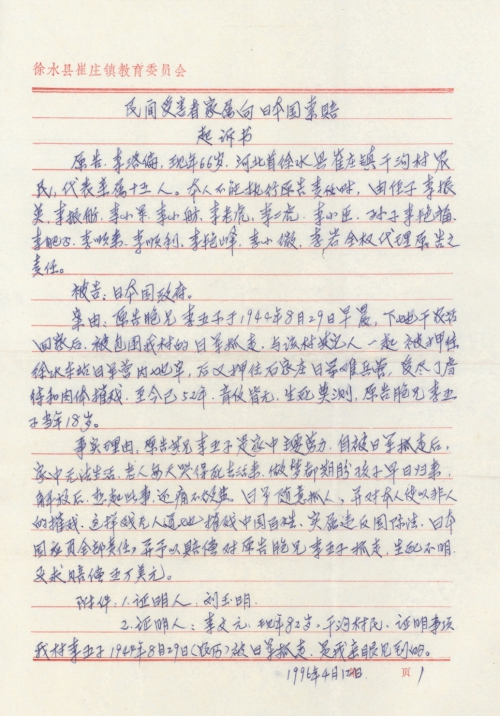 徐水县崔庄镇教育委员会
民间受害者家属向日本国索赔
起诉书
原告：李塔梅，现年66岁，河北省徐水县崔庄镇干河村农
民，代表亲属十三人。本人不能执行原告责任时，由侄子李振
英、李振舫、李小军、李小舫、李老虎、李二虎、李小臣、孙子李艳福、
李艳乃、李顺来、李顺利、李艳峰、李小傲、李岩全权代理原告之
责任。
被告：日本国政府。
案由：原告胞兄李丑子于1944年8月29日早晨，下地干农活
回家后，被包围我村的日军抓走，与该村数名人一起被押往
徐水车站日军营内地牢，后又押往石家庄日军难兵营，受尽了虐
待和肉体摧残，至今已52年，音信皆无，生死莫测，原告胞兄李丑
子当年18岁。
事实理由，原告其兄李丑子是家中主要劳力，自被日军抓走后，
家中无法生活，老人每天哭得死去活来，做梦都期盼孩子早日归来，
解放后，想起此事，还痛不欲生。日军随意抓人，并对本人使以非人
的摧残，这样残无人道地摧残中国百姓，实属违反国际法，日本
国应负全部责任，并予以赔偿对原告胞兄李丑子抓走，生死不明，
要求赔偿五万美元。
附件：1.证明人，刘玉明。
2.证明人：李文元，现年82岁，干河村民，证明事项
我村李丑子1944年8月29日(农历)被日军抓走，是我亲眼见到的。
1996年4月12日 页 1